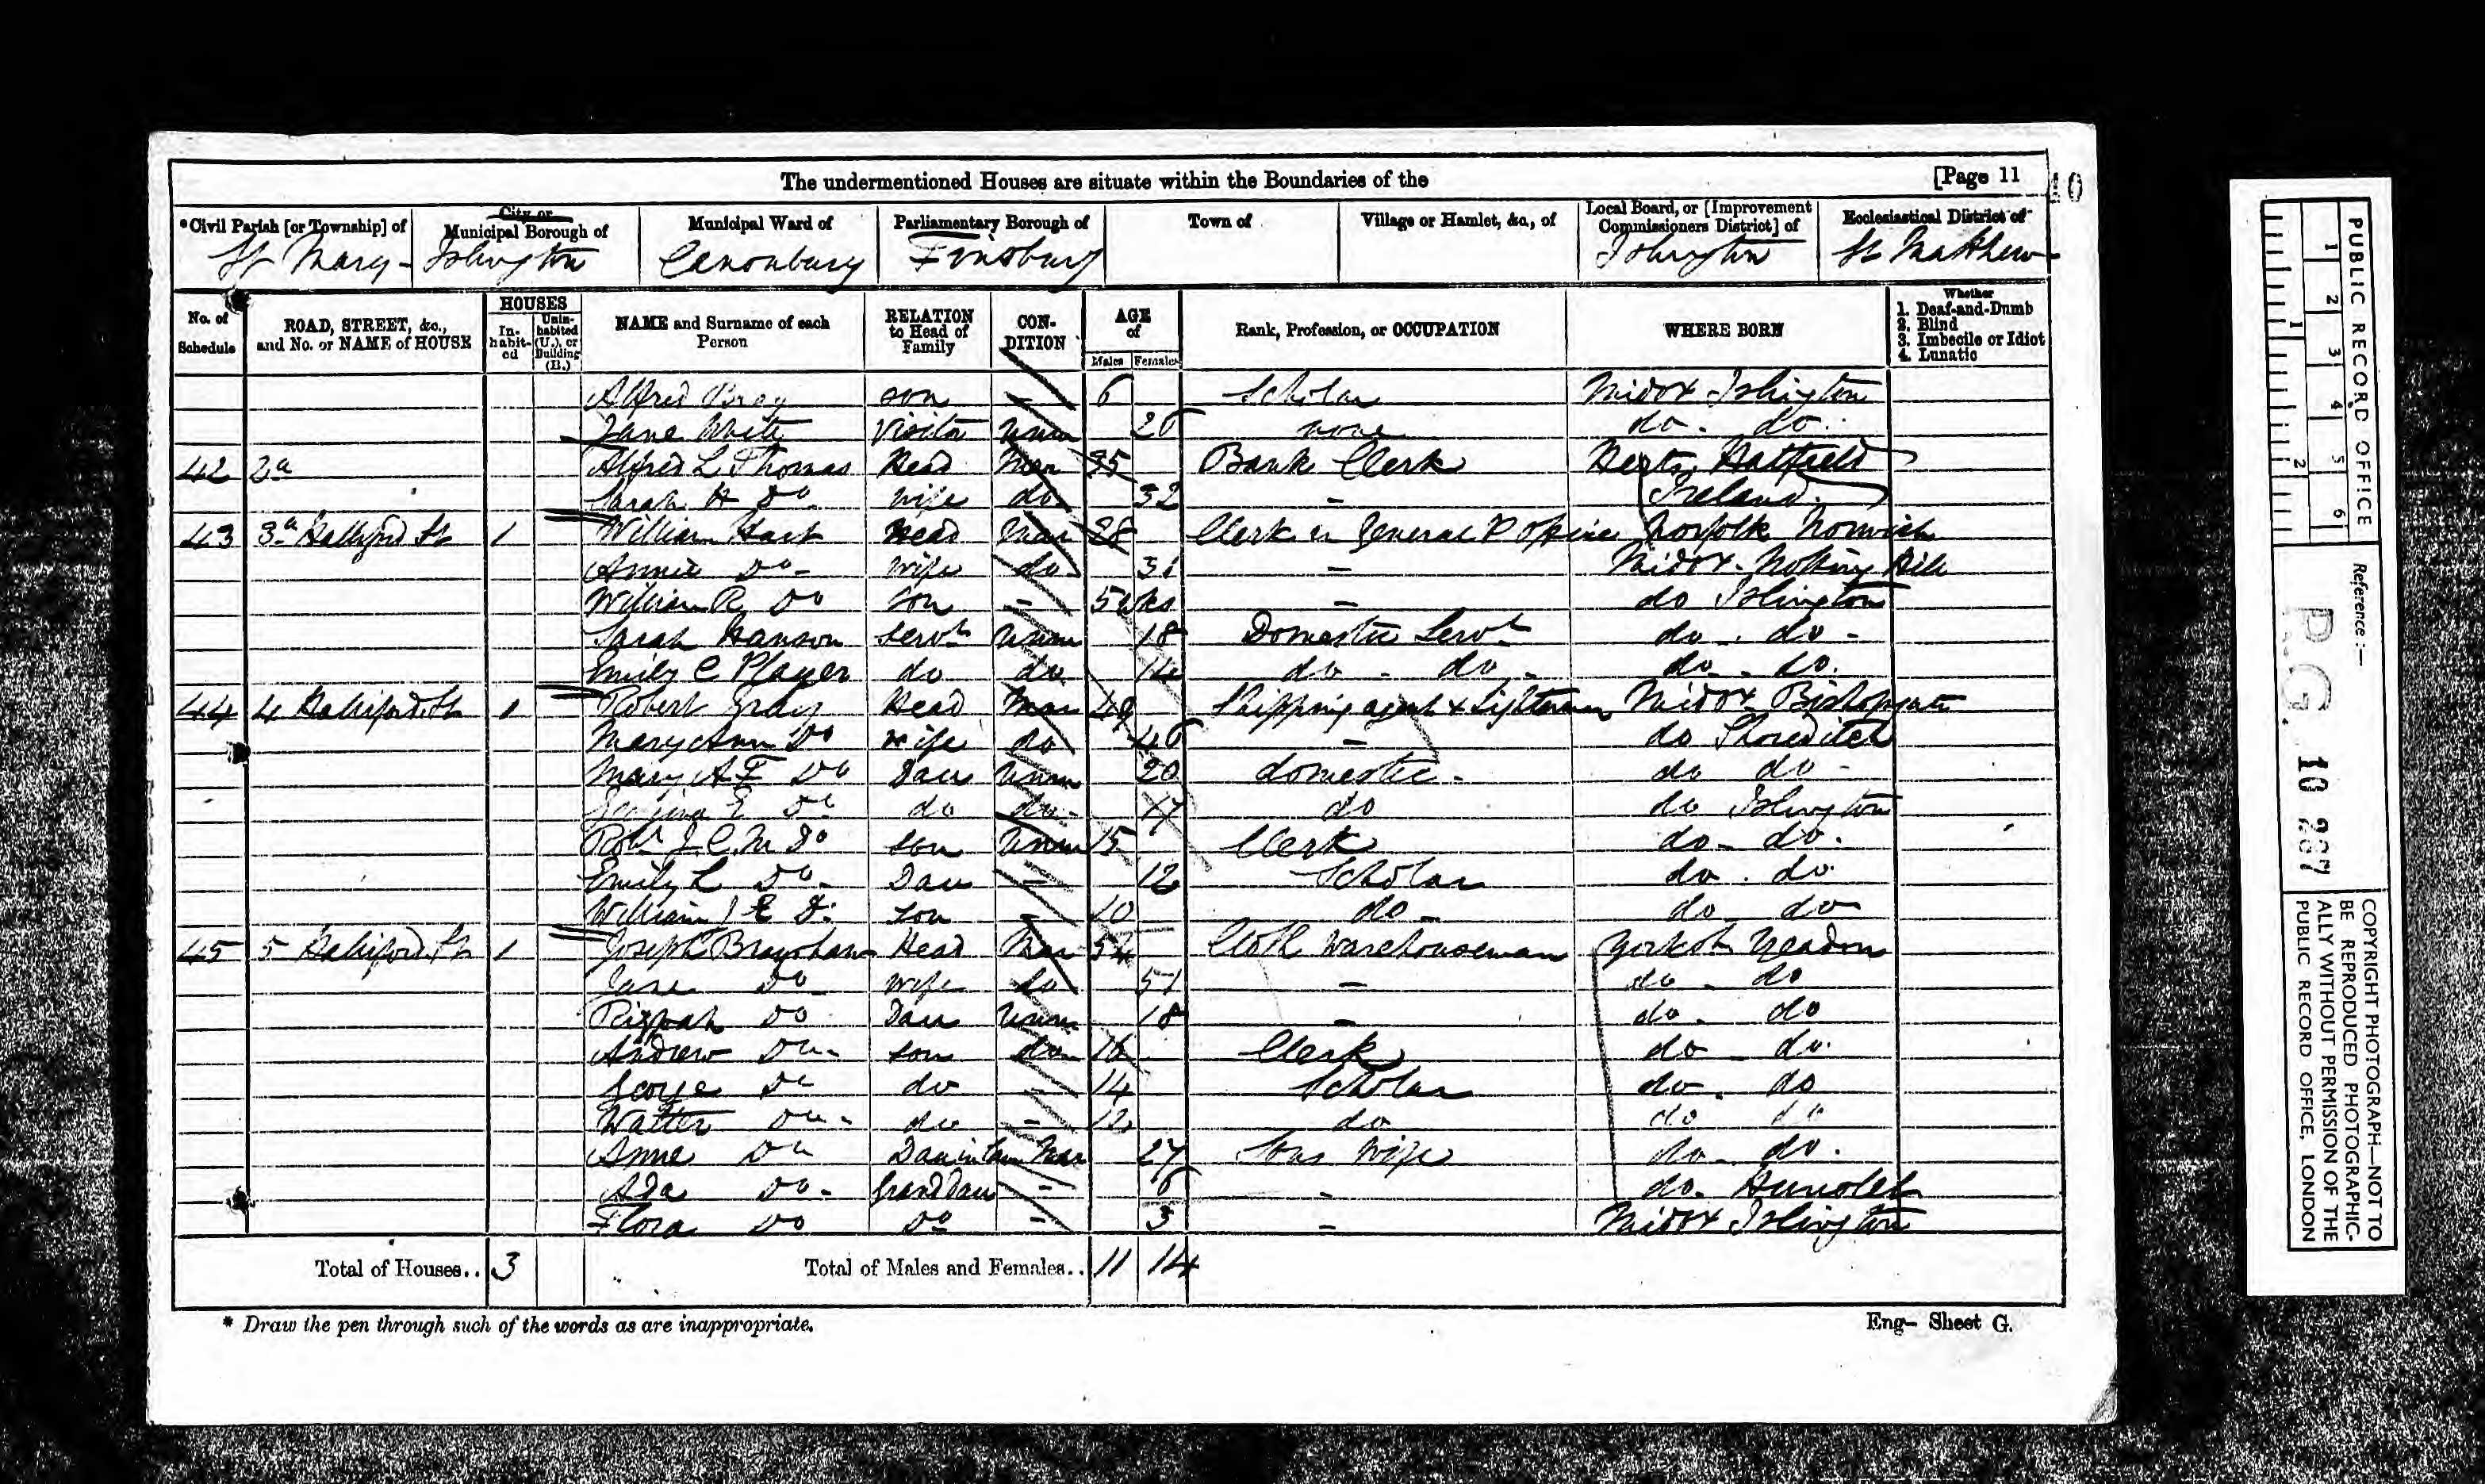 The undermentioned Houses are situate within the Boundaries of the [Page 11
*Civil Parish [or Township] of City or Municipal Borough of Municipal Ward of Parliamentary Borough of Town of Village or Hamlet, &c., of Local Board, or [Improvement Commissioners District] of Ecclesiastical District of
St Mary - Islington Canonbury Finsbury Islington St Matthew
No. of Schedule ROAD, STREET, &c., and No. or NAME of HOUSE HOUSES Inhabited Uninhabited (U.), or Building (B.) NAME and Surname of each Person RELATION to Head of Family CONDITION AGE of Males Females Rank, Profession, or OCCUPATION WHERE BORN Whether 1. Deaf-and-Dumb 2. Blind 3. Imbecile or Idiot 4. Lunatic
Alfred son - 6 Scholar Middx Islington
Jane White Visitor Unm 26 none do. do.
42 2a Alfred L Thomas Head Mar 35 Bank Clerk Herts, Hatfield
Sarah H Do. Wife do 32 - Ireland
43 3a Halliford St 1 William Hart Head Mar 28 Clerk in General P Office Norfolk Norwich
Annie Do - Wife do 31 - Middx - Notting Hill
William R Do Son - 5 wks - do Islington
Sarah Hanson Servt Unm 18 Domestic Servt do. do -
Emily C Player do do 14 do - do - do - do.
44 4 Halliford St 1 Robert Gray Head Mar 49 Shipping agent & Lighterman Middx Bishopgate
Mary Ann Do Wife do 46 - do Shoreditch
Mary A F Do Dau Unm 20 domestic - do do -
E Do do do - 17 do do Islington
Robt J. C. M Do Son Unm 15 Clerk do - do.
Emily L Do - Dau - 12 Scholar do. do.
William J E Do Son - 10 do - do do
45 5 Halliford St 1 Joseph Brayshaw Head Mar 54 Cloth Warehouseman Yorksh Yeadon
Jane Do Wife do 51 - do - do
Rizpah Do Dau Unm 18 - do - do
Andrew Do - Son do 16 Clerk do - do.
George Do do - 14 Scholar do. do
Walter Do - do - 12 do do do
Anne Do Dau in law Mar 27 Sons Wife do - do.
Ada Do - Grand Dau - 6 - do. Hunslet
Flora Do Do - 3 - Middx Islington
Total of Houses.. 3 Total of Males and Females.. 11 14
* Draw the pen through such of the words as are inappropriate.
Eng- Sheet G.
PUBLIC RECORD OFFICE
1 2 3 4 5 6
1 2
Reference :-
R.G. 10 237
COPYRIGHT PHOTOGRAPH—NOT TO
BE REPRODUCED PHOTOGRAPHIC-
ALLY WITHOUT PERMISSION OF THE
PUBLIC RECORD OFFICE, LONDON